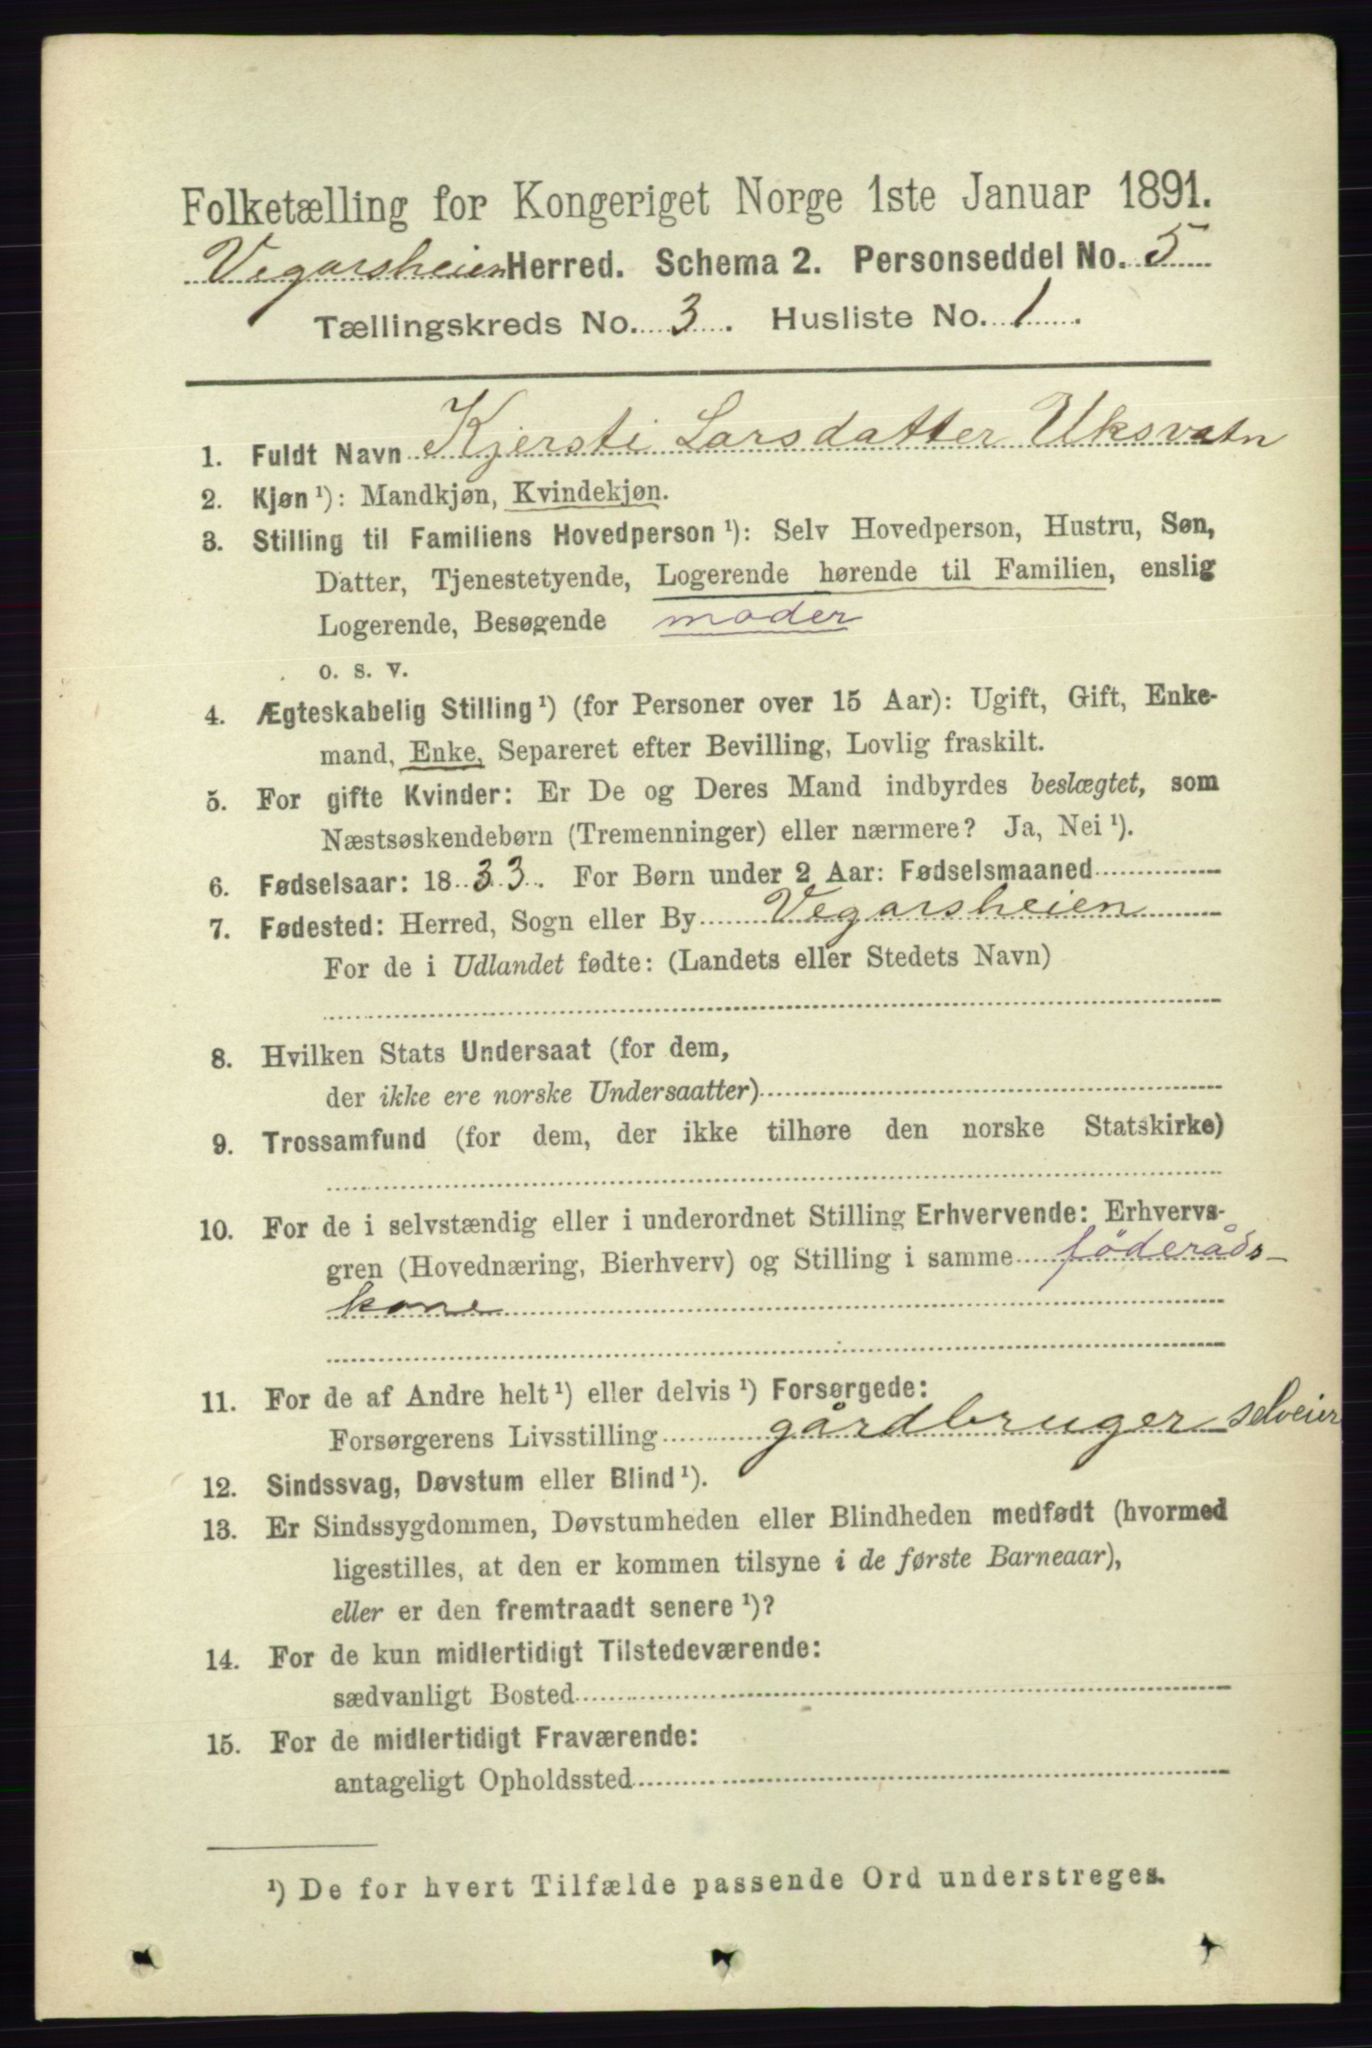 Folketælling for Kongeriget Norge 1ste Januar 1891.
Vegarsheien Herred. Schema 2. Personseddel No. 5
Tællingskreds No. 3. Husliste No. 1.
1. Fuldt Navn Kjersti Larsdatter Uksvatn
2. Kjøn ¹): Mandkjøn, Kvindekjøn.
3. Stilling til Familiens Hovedperson ¹): Selv Hovedperson, Hustru, Søn,
Datter, Tjenestetyende, Logerende hørende til Familien, enslig
Logerende, Besøgende moder
o. s. v.
4. Ægteskabelig Stilling ¹) (for Personer over 15 Aar): Ugift, Gift, Enke-
mand, Enke, Separeret efter Bevilling, Lovlig fraskilt.
5. For gifte Kvinder: Er De og Deres Mand indbyrdes beslægtet, som
Næstsøskendebørn (Tremenninger) eller nærmere? Ja, Nei ¹).
6. Fødselsaar: 1833. For Børn under 2 Aar: Fødselsmaaned
7. Fødested: Herred, Sogn eller By Vegarsheien
For de i Udlandet fødte: (Landets eller Stedets Navn)
8. Hvilken Stats Undersaat (for dem,
der ikke ere norske Undersaatter)
9. Trossamfund (for dem, der ikke tilhøre den norske Statskirke)
10. For de i selvstændig eller i underordnet Stilling Erhvervende: Erhvervs-
gren (Hovednæring, Bierhverv) og Stilling i samme föderåds-
kone
11. For de af Andre helt ¹) eller delvis ¹) Forsørgede:
Forsørgerens Livsstilling gårdbruger selveier
12. Sindssvag, Døvstum eller Blind ¹).
13. Er Sindssygdommen, Døvstumheden eller Blindheden medfødt (hvormed
ligestilles, at den er kommen tilsyne i de første Barneaar),
eller er den fremtraadt senere ¹)?
14. For de kun midlertidigt Tilstedeværende:
sædvanligt Bosted
15. For de midlertidigt Fraværende:
antageligt Opholdssted
¹) De for hvert Tilfælde passende Ord understreges.